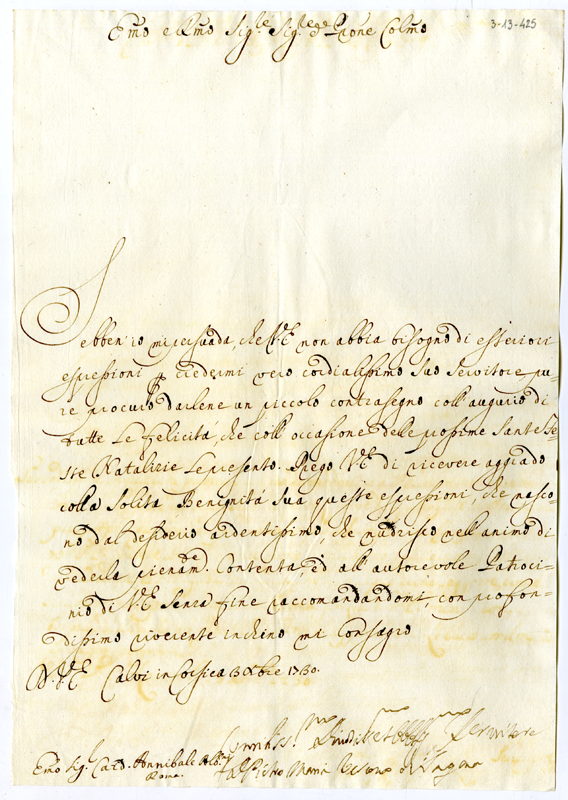 3-13-425
Emo e Rmo Sig.re Sig.re e Prone Colmo
Sebben io mi persuada, che V.E. non abbia bisogno di esteriori
espressioni p credermi vero cordialissimo suo servitore pu-
re procuro darlene un piccolo contrasegno coll'augurio di
tutte Le felicità, che coll'occasione delle prossime Sante Fe-
ste Natalizie Le presento. Priego V.E. di ricevere aggrado
colla Solita Benignità sua queste espressioni, che nasco-
no dal desiderio ardentissimo, che nudrisco nell'animo di
vederla pienam.te Contenta, ed all'autorevole Patroci-
nio di V.E. Senza fine raccomandandomi, con profon-
dissimo riverente inchino mi Consagro
D. V.E. Calvi in Corsica 13 Xbre 1730.
Servitore
Emo Sig. Card. Annibale Alb.
Roma.
Pietro Maria